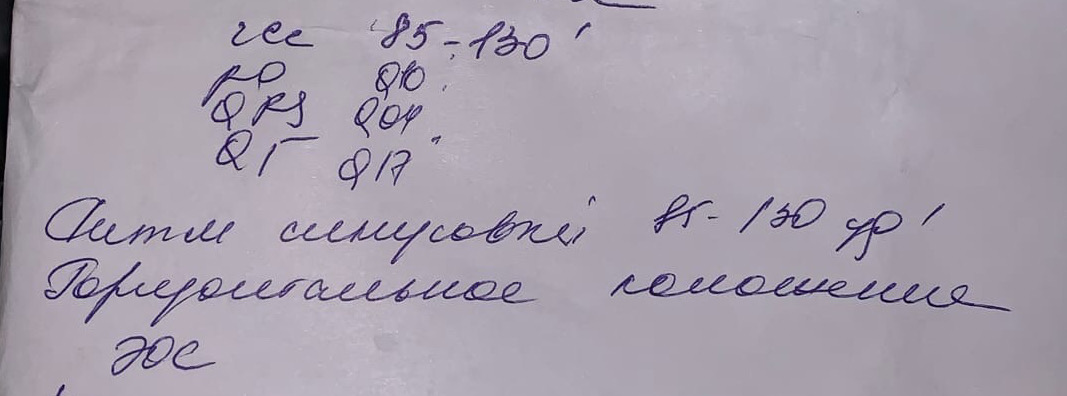 чсс 85-130'
PQ 0,10
QRS 0,04
QT 0,17"
Ритм синусовый 85-130 уд'
Горизонтальное положение
ЭОС